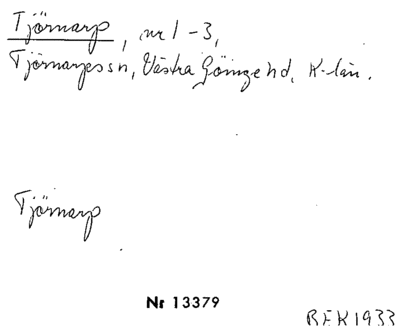 Tjörnarp, nr 1-3,
Tjörnarps sn, Västra Göinge hd, K-län.
Tjörnarp
Nr 13379
BEK1933